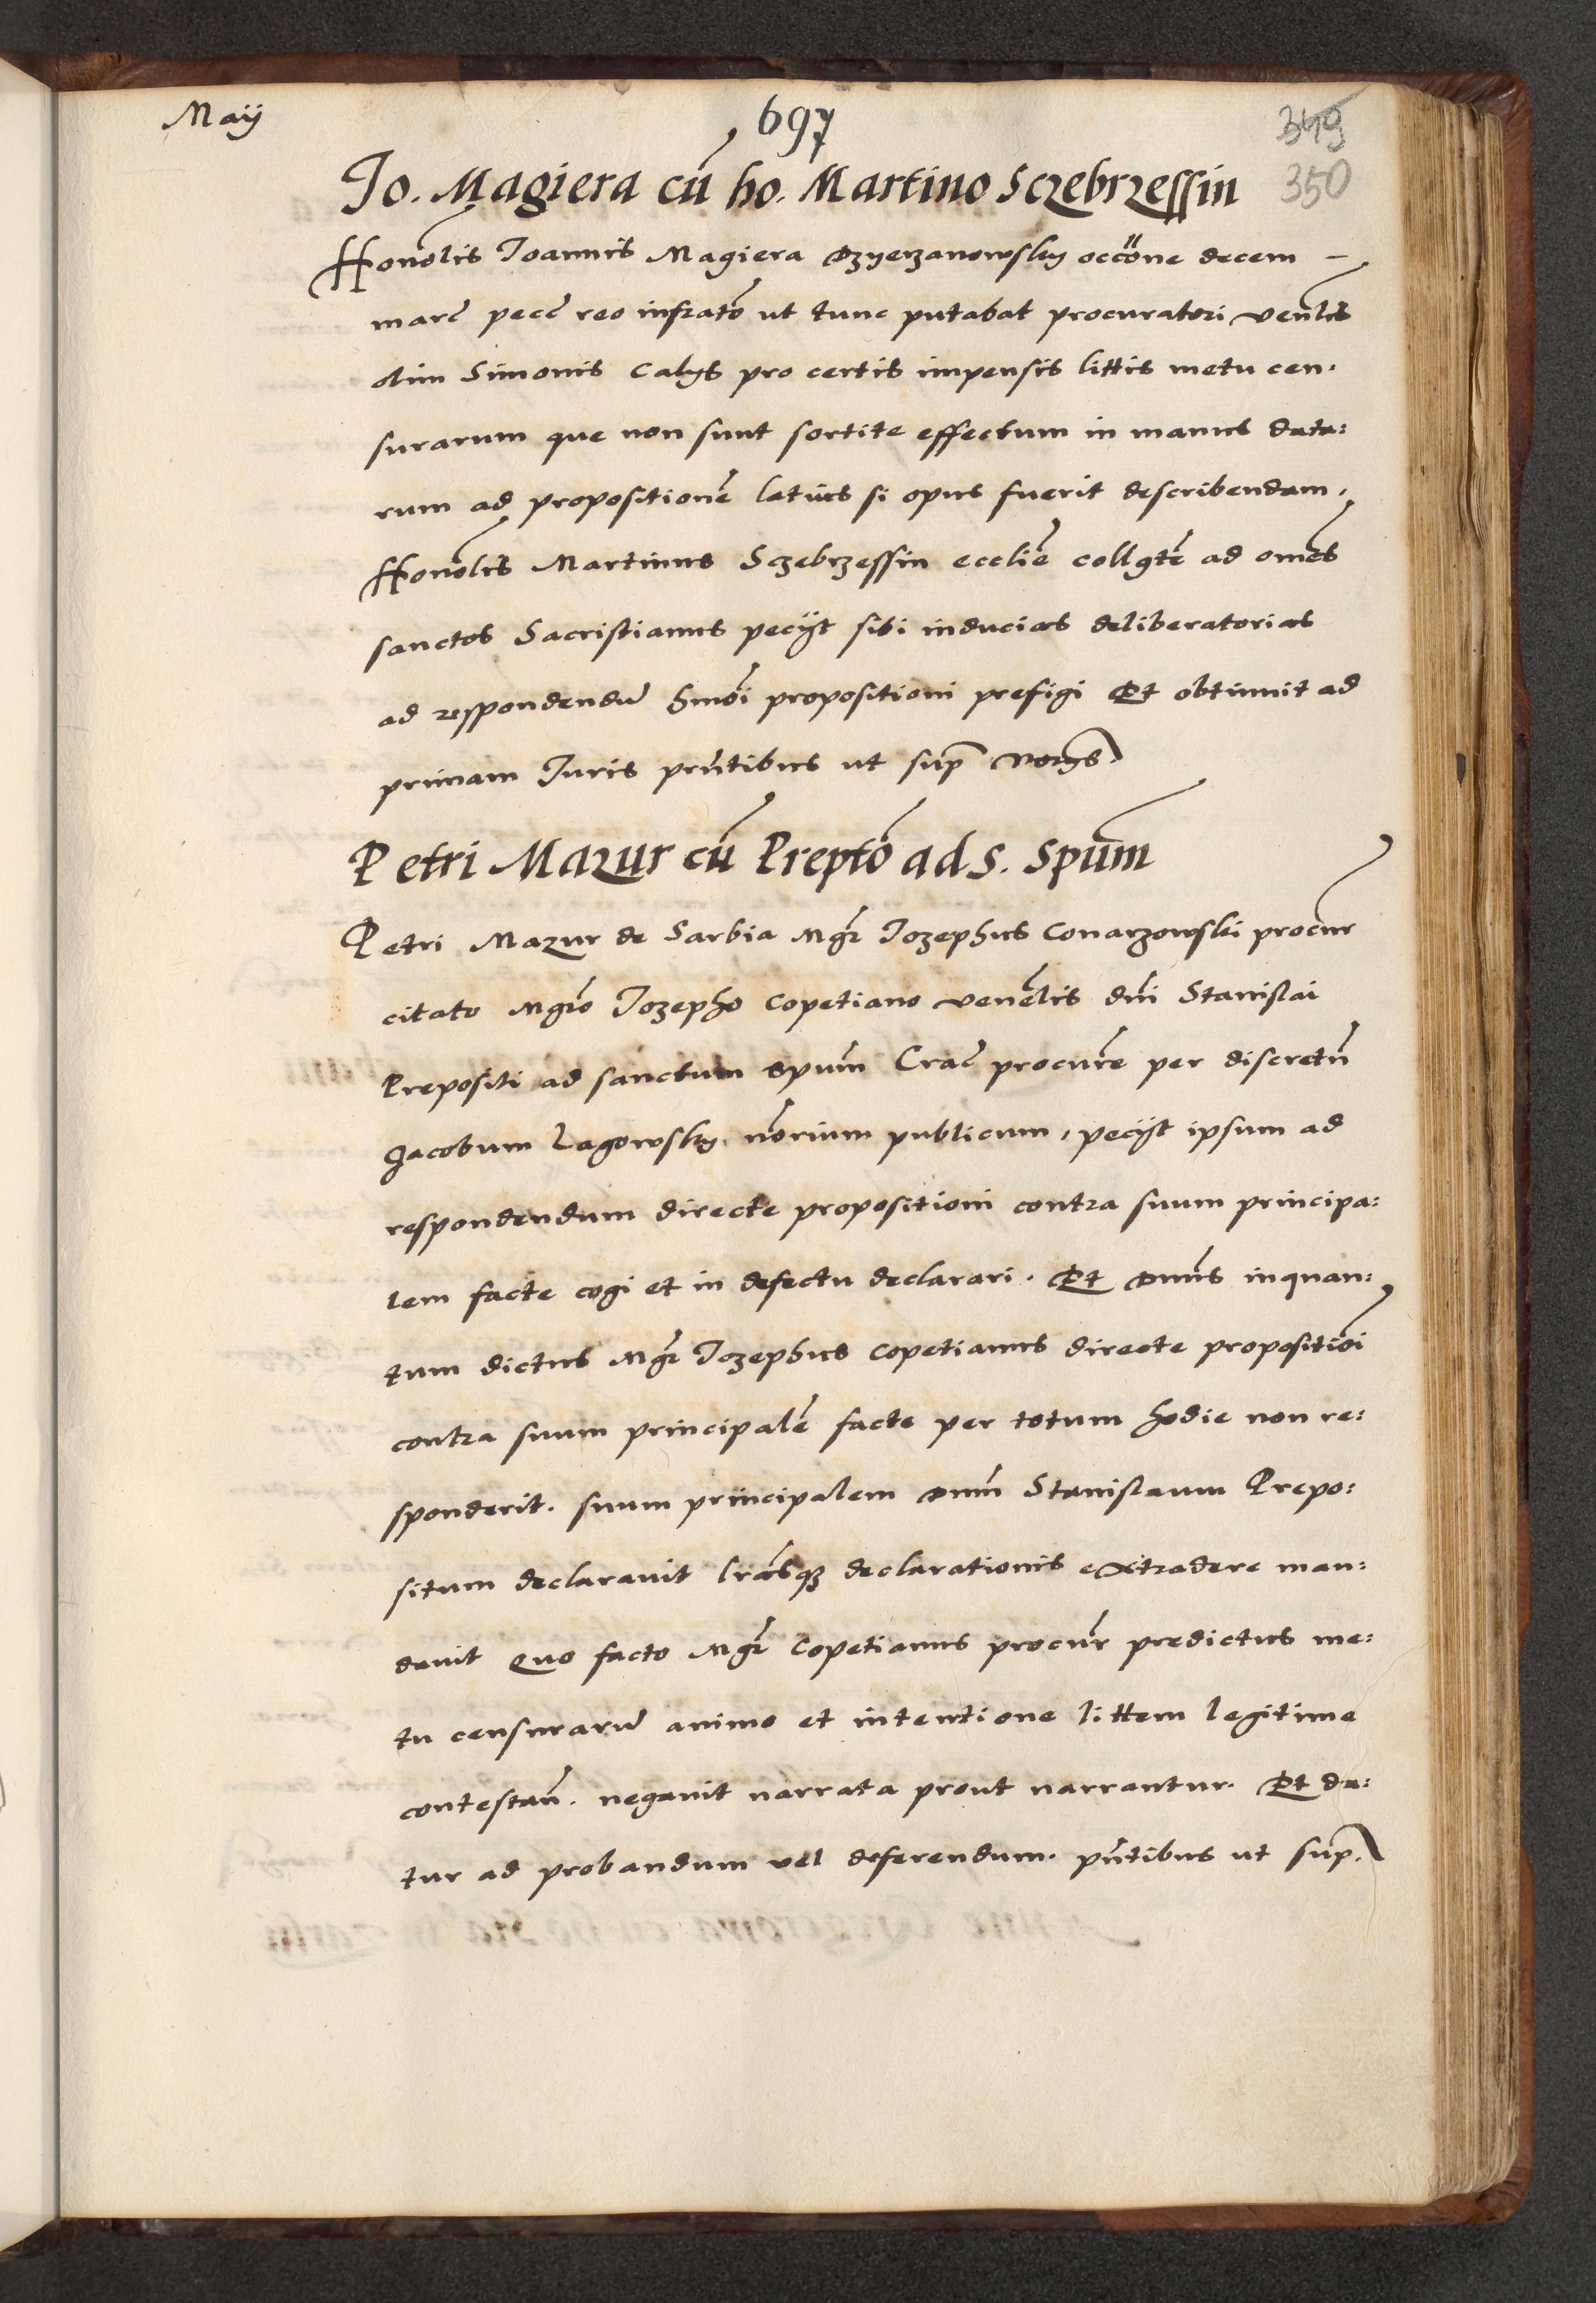 Maij
697
349
350
Jo. Magiera cū ho. Martino Sczebrzessin
Honōlis Joannis Magiera Dzyerzanowsky occōne decem –
marc̄ pecc̄ reo infratō ut tunc putabat procuratori venlis
olim Simonis Calys pro certis impensis littis metu cen-
surarum que non sunt sortite effectum in manus datu:
rum ad propositionē latius si opus fuerit describendam,
Honōlis Martinus Sczebrzessin ecclīe collgtē ad omēs
sanctos Sacristianus pecijt sibi inducias deliberatorias
ad respondendū hmōi propositioni prefigi Et obtinuit ad
primam Juris pn̄tibus ut sup̄
Petri Mazur cū Preptō ad S. Spūm
Petri Mazur de Sarbia Mgr̄ Jozephus Conarzowski procur̄
citato Mgrō Jozepho Copetiano venēlis dn̄i Stanislai
Prepositi ad sanctum Spūm Crac̄ procur̄e per discretū
Jacobum Lagowsky, nōrium publicum, pecijt ipsum ad
respondendum directe propositioni contra suum principa:
lem facte cogi et in defectu declarari. Et Dnūs inquan:
tum dictus Mgr̄ Jozephus Copetianus directe propositiōi
contra suum principalē facte per totum hodie non re:
sponderit. suum principalem Dnūm Stanislaum Prepo:
situm declarauit lrāsq̨ declarationis extradere man:
dauit Quo facto Mgr̄ Copetianus procūr predictus me:
tu censurarū animo et intentione littem legitime
contestan̄. negauit narrata prout narrantur. Et da:
tur ad probandum vel deferendum. pn̄tibus ut sup.